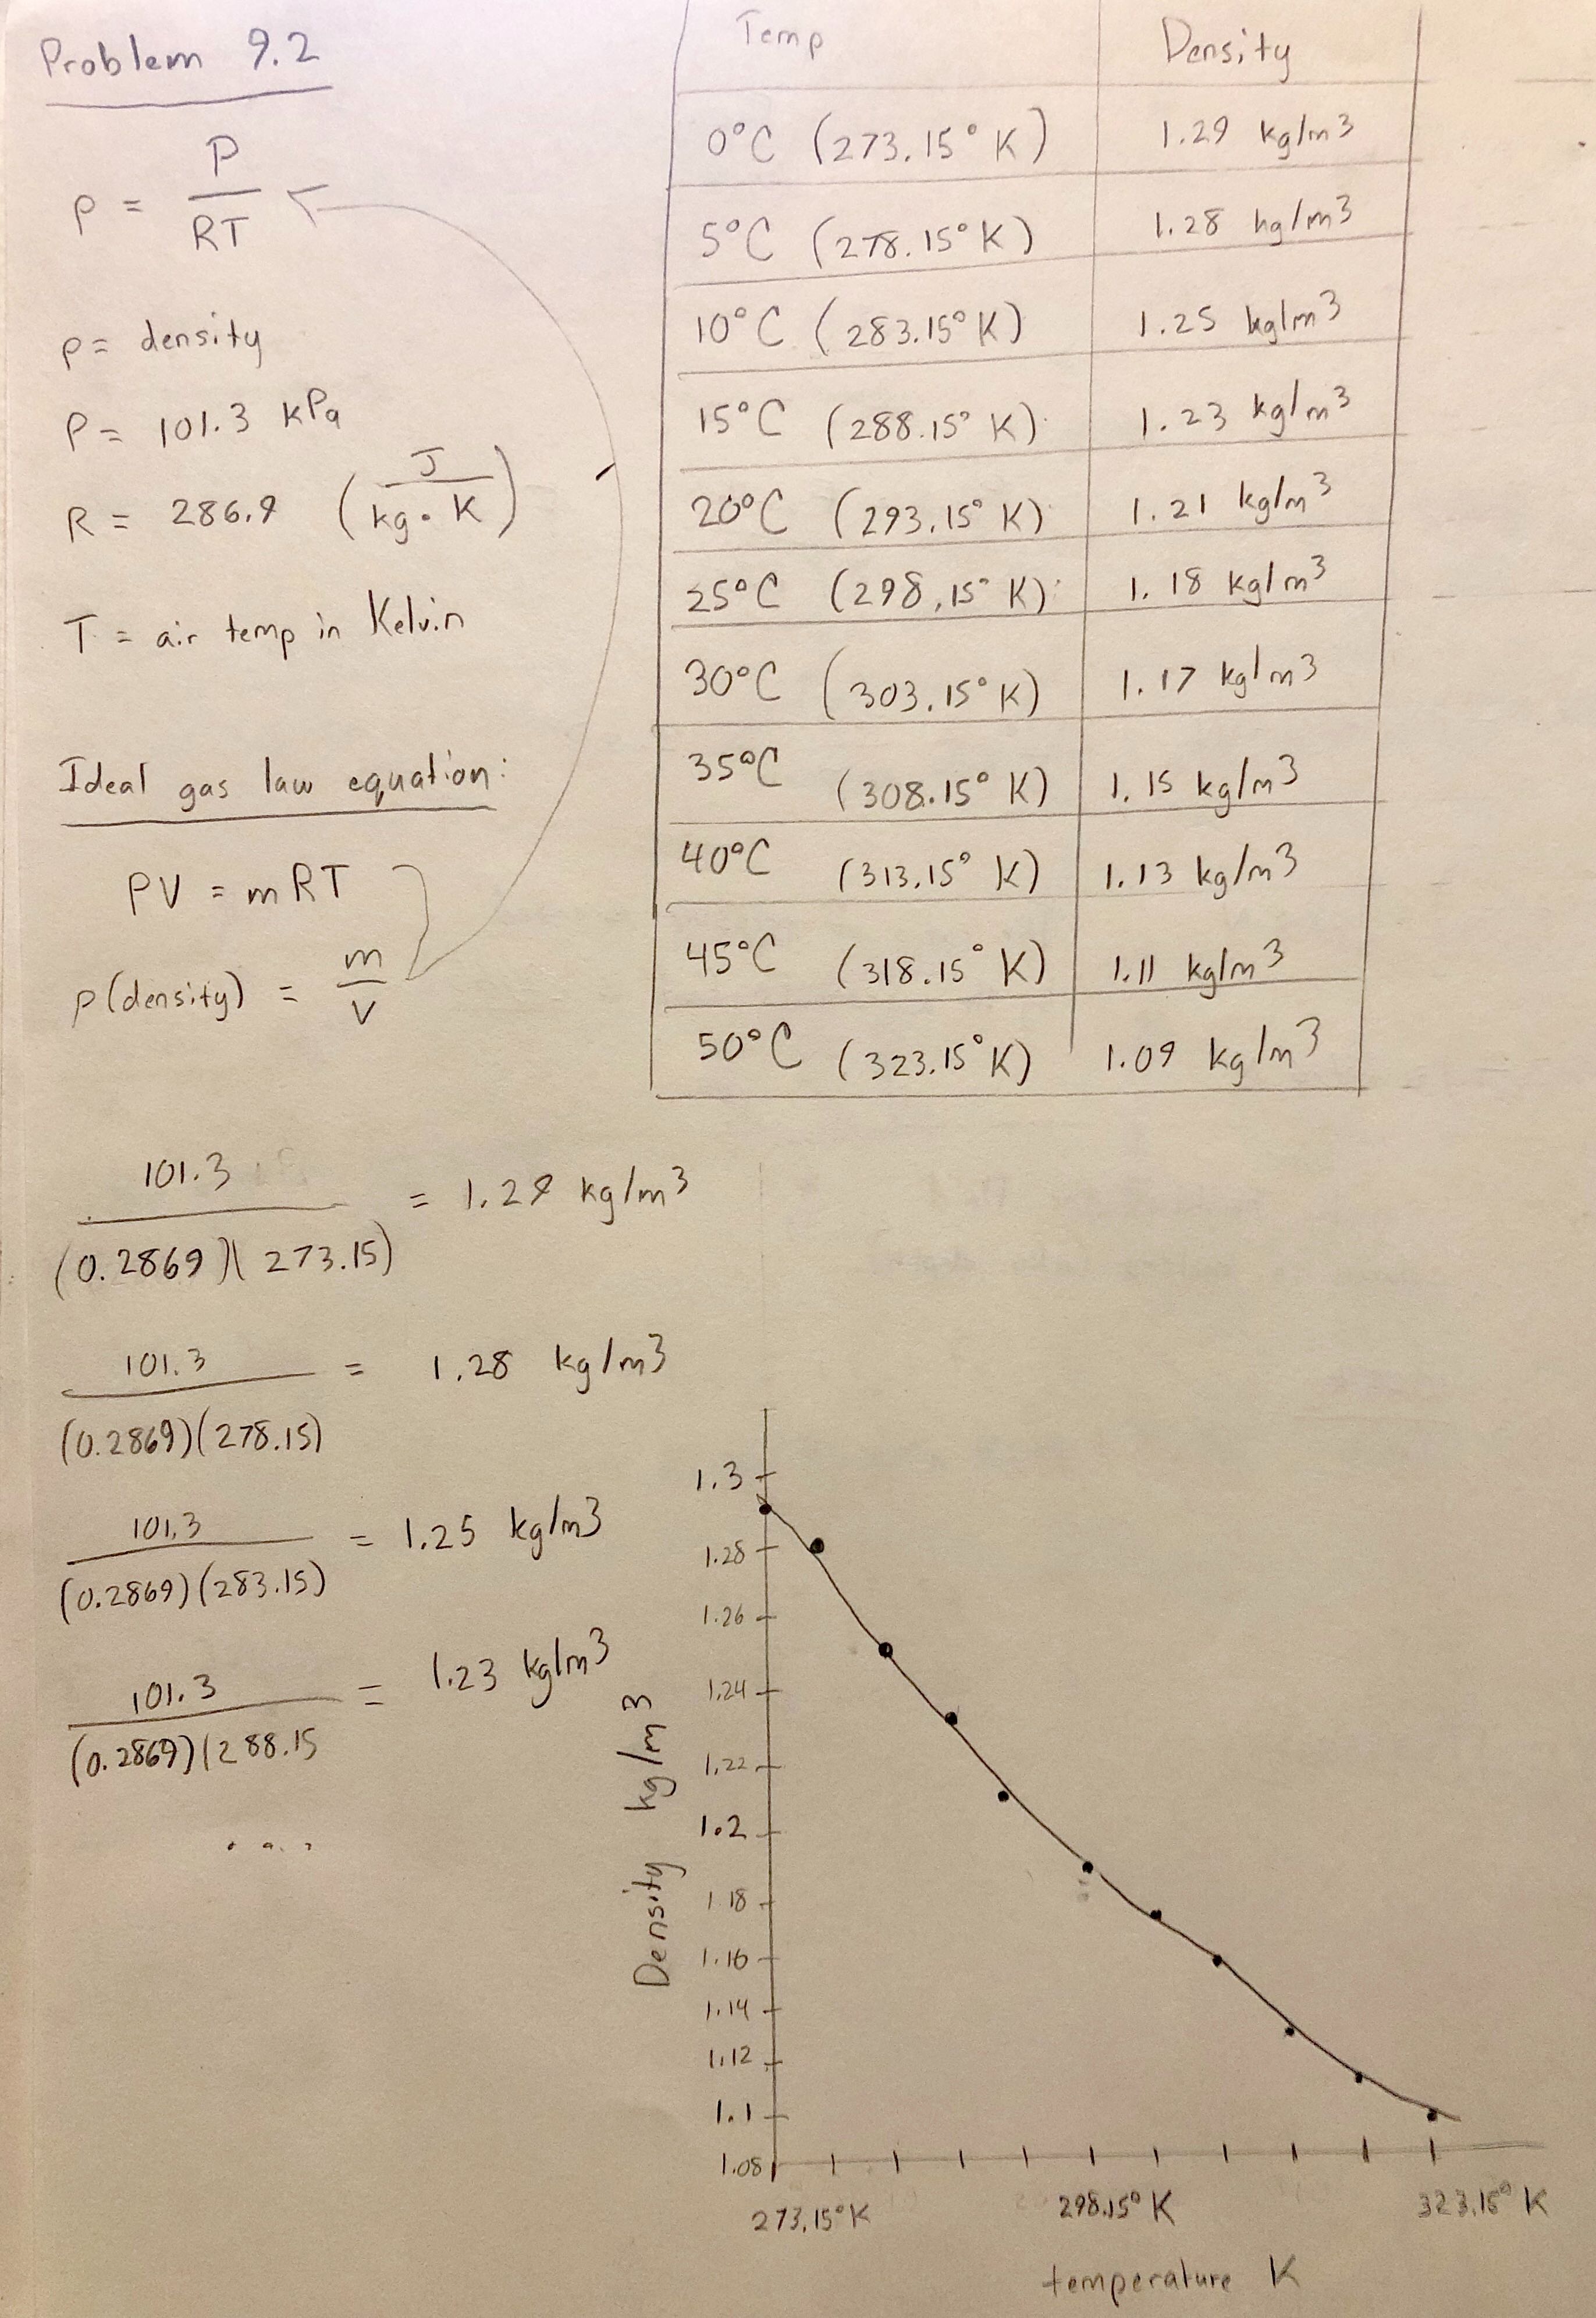 Problem 9.2
ρ = P / RT
ρ = density
P = 101.3 kPa
R = 286.9 (J / kg · K)
T = air temp in Kelvin
Ideal gas law equation:
PV = mRT
ρ (density) = m / V
Temp Density
0°C (273.15° K) 1.29 kg/m3
5°C (278.15° K) 1.28 kg/m3
10°C (283.15° K) 1.25 kg/m3
15°C (288.15° K) 1.23 kg/m3
20°C (293.15° K) 1.21 kg/m3
25°C (298.15° K) 1.18 kg/m3
30°C (303.15° K) 1.17 kg/m3
35°C (308.15° K) 1.15 kg/m3
40°C (313.15° K) 1.13 kg/m3
45°C (318.15° K) 1.11 kg/m3
50°C (323.15° K) 1.09 kg/m3
101.3 / (0.2869)(273.15) = 1.29 kg/m3
101.3 / (0.2869)(278.15) = 1.28 kg/m3
101.3 / (0.2869)(283.15) = 1.25 kg/m3
101.3 / (0.2869)(288.15 = 1.23 kg/m3
....
Density kg/m3
1.3
1.28
1.26
1.24
1.22
1.2
1.18
1.16
1.14
1.12
1.1
1.08
273.15°K 298.15° K 323.15° K
temperature K